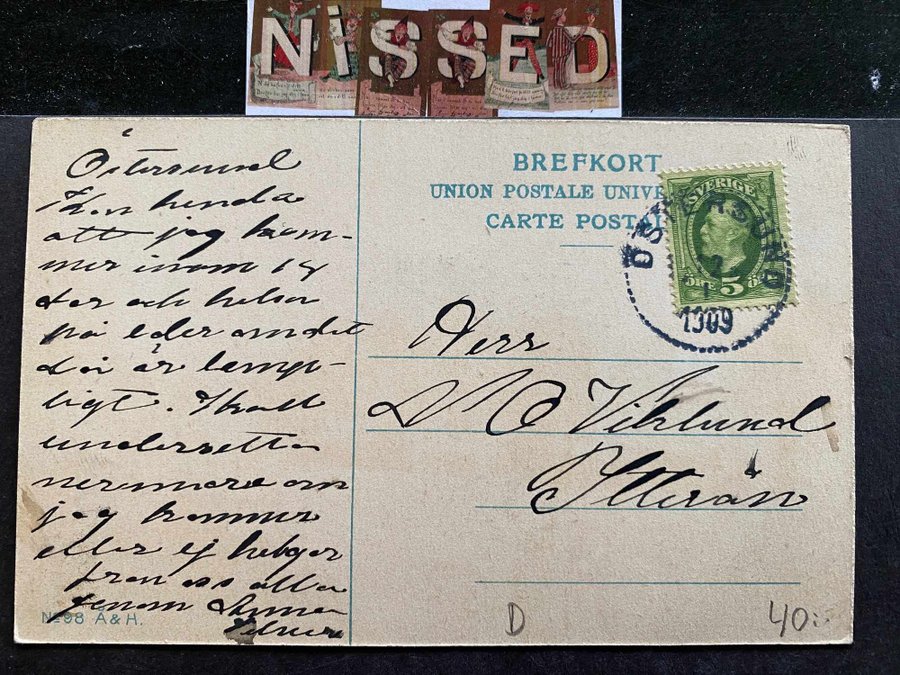 NISSED
Östersund
Kan hända
att jag kom-
mer inom 14
dar och helsa
på eder om det
då är lämp-
ligt. Skall
underrätta
nermare om
jag kommer
eller ej helsar
från oss alla
genom
BREFKORT
UNION POSTALE UNIVE
CARTE POSTA
SVERIGE
5
ÖSTERSUND
1909
Herr
Wiklund
Ytterån
No 98 Å & H.
D
40:-